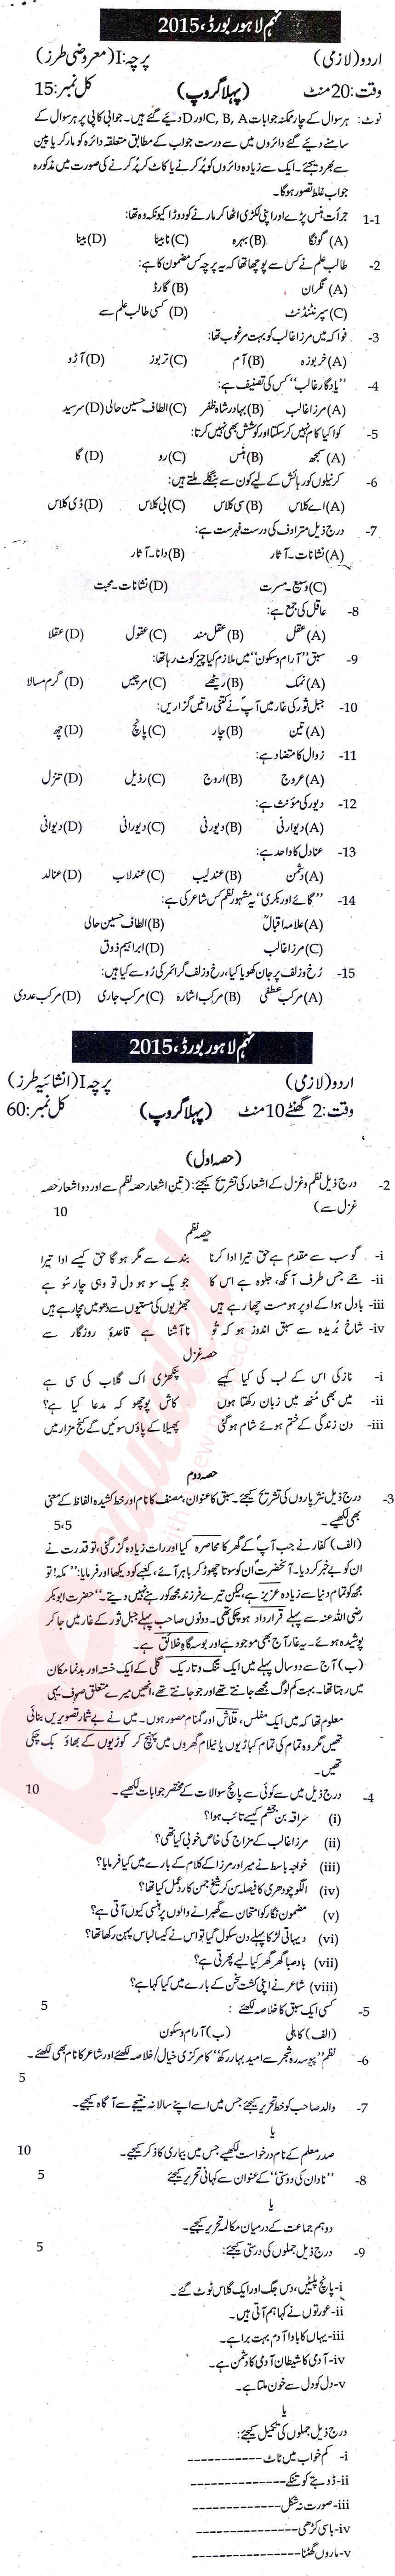 نہم لاہور بورڈ، 2015
اردو (لازمی) پرچہ: I (معروضی طرز)
وقت: 20 منٹ (پہلا گروپ) کل نمبر: 15
نوٹ: ہر سوال کے چار ممکنہ جوابات A، B، C اور D دیئے گئے ہیں۔ جوابی کاپی پر ہر سوال کے
سامنے دیئے گئے دائروں میں سے درست جواب کے مطابق متعلقہ دائرہ کو مارکر یا پین
سے بھر دیجئے۔ ایک سے زیادہ دائروں کو پُر کرنے یا کاٹ کر پُر کرنے کی صورت میں مذکورہ
جواب غلط تصور ہوگا۔
1-1 جرأت ہنس پڑے اور اپنی لکڑی اٹھا کر مارنے کو دوڑا کیونکہ وہ تھا:
(A) گونگا (B) بہرہ (C) نابینا (D) بینا
2- طالب علم نے کس سے پوچھا تھا کہ یہ پرچہ کس مضمون کا ہے:
(A) نگران (B) گارڈ
(C) سپرنٹنڈنٹ (D) کسی طالب علم سے
3- فواکہ میں مرزا غالب کو بہت مرغوب تھا:
(A) خربوزہ (B) آم (C) تربوز (D) آڑو
4- ”یادگار غالب“ کس کی تصنیف ہے:
(A) مرزا غالب (B) بہادر شاہ ظفر (C) الطاف حسین حالی (D) سرسید
5- کوا کیا کام نہیں کر سکتا اور کوشش بھی نہیں کرتا:
(A) سمجھ (B) ہنس (C) رو (D) گا
6- کرنیلوں کو رہائش کے لیے کون سے بنگلے ملتے ہیں:
(A) اے کلاس (B) سی کلاس (C) بی کلاس (D) ڈی کلاس
7- درج ذیل مترادف کی درست فہرست ہے:
(A) نشانات۔ آثار (B) دانا۔ آثار
(C) وسیع۔ مسرت (D) نشانات۔ محبت
8- عاقل کی جمع ہے:
(A) عقل (B) عقل مند (C) عقول (D) عقلا
9- سبق ”آرام و سکون“ میں ملازم کیا چیز کوٹ رہا تھا:
(A) نمک (B) ریٹھے (C) مرچیں (D) گرم مسالا
10- جبل ثور کی غار میں آپؐ نے کتنی راتیں گزاریں:
(A) تین (B) چار (C) پانچ (D) چھ
11- زوال کا متضاد ہے:
(A) عروج (B) اروج (C) رذیل (D) تنزل
12- دیور کی مونث ہے:
(A) دیوارنی (B) دیورنی (C) دیورانی (D) دیوانی
13- عنادل کا واحد ہے:
(A) دشمن (B) عندلیب (C) عندلاب (D) عنالد
14- ”گائے اور بکری“ یہ مشہور نظم کس شاعر کی ہے:
(A) علامہ اقبالؒ (B) الطاف حسین حالی
(C) مرزا غالب (D) ابراہیم ذوق
15- رُخ و زلف پر جان کھویا کیا، رخ و زلف گرائمر کی رُو سے کیا ہیں:
(A) مرکب عطفی (B) مرکب اشارہ (C) مرکب جاری (D) مرکب عددی
نہم لاہور بورڈ، 2015
اردو (لازمی) پرچہ I (انشائیہ طرز)
وقت: 2 گھنٹے 10 منٹ (پہلا گروپ) کل نمبر: 60
(حصہ اول)
2- درج ذیل نظم و غزل کے اشعار کی تشریح کیجئے: (تین اشعار حصہ نظم سے اور دو اشعار حصہ
غزل سے) 10
حصہ نظم
i- گو سب سے مقدم ہے حق تیرا ادا کرنا بندے سے مگر ہو گا حق کیسے ادا تیرا
ii- جئے جس طرف آنکھ، جلوہ ہے اس کا جو یک سو ہو دل تو وہی چار سُو ہے
iii- بادل ہوا کے اوپر ہو مست چھا رہے ہیں جھڑیوں کی مستیوں سے دھومیں مچا رہے ہیں
iv- شاخ بُریدہ سے سبق اندوز ہو کہ تُو ناآشنا ہے قاعدۂ روزگار سے
حصہ غزل
i- نازکی اس کے لب کی کیا کہیے پنکھڑی اک گلاب کی سی ہے
ii- میں بھی مُنھ میں زبان رکھتا ہوں کاش پوچھو کہ مدعا کیا ہے؟
iii- دن زندگی کے ختم ہوئے شام ہو گئی پھیلا کے پاؤں سوئیں گے کنج مزار میں
حصہ دوم
3- درج ذیل نثر پاروں کی تشریح کیجئے۔ سبق کا عنوان، مصنف کا نام اور خط کشیدہ الفاظ کے معنی
بھی لکھیے۔ 5،5
(الف) کفار نے جب آپؐ کے گھر کا محاصرہ کیا اور رات زیادہ گزر گئی، تو قدرت نے
ان کو بے خبر کر دیا۔ آنحضرتؐ ان کو سوتا چھوڑ کر باہر آئے، کعبے کو دیکھا اور فرمایا: ”مکہ! تو
مجھ کو تمام دنیا سے زیادہ عزیز ہے، لیکن تیرے فرزند مجھ کو رہنے نہیں دیتے۔“ حضرت ابوبکر
رضی اللہ عنہ سے پہلے قرارداد ہو چکی تھی۔ دونوں صاحب پہلے جبل ثور کے غار میں جا کر
پوشیدہ ہوئے۔ یہ غار آج بھی موجود ہے اور بوسہ گاہِ خلائق ہے۔
(ب) آج سے دو سال پہلے میں ایک تنگ و تاریک گلی کے ایک خستہ اور بدنما مکان
میں رہتا تھا۔ بہت کم لوگ مجھے جانتے تھے اور جو جانتے تھے، انھیں میرے متعلق صرف یہی
معلوم تھا کہ میں ایک مفلس، قلاش اور گمنام مصور ہوں۔ میں نے بے شمار تصویریں بنائی
تھیں مگر وہ تمام کی تمام کباڑیوں یا نیلام گھروں میں پہنچ کر کوڑیوں کے بھاؤ بک چکی
تھیں۔
4- درج ذیل میں سے کوئی سے پانچ سوالات کے مختصر جوابات لکھیے۔ 10
(i) سراقہ بن جشم کیسے تائب ہوا؟
(ii) مرزا غالب کے مزاج کی خاص خوبی کیا تھی؟
(iii) خواجہ باسط نے میر اور مرزا کے کلام کے بارے میں کیا فرمایا؟
(iv) الگو چودھری کا فیصلہ سن کر شیخ جمن کا ردعمل کیا تھا؟
(v) مضمون نگار کو امتحان سے گھبرانے والوں پر ہنسی کیوں آتی ہے؟
(vi) دیہاتی لڑکا پہلے دن سکول گیا تو اس نے کیسا لباس پہن رکھا تھا؟
(vii) باد صبا گھر گھر کیا لیے پھرتی ہے؟
(viii) شاعر نے اپنی کشت سخن کے بارے میں کیا کہا ہے؟
5- کسی ایک سبق کا خلاصہ لکھئے: 5
(الف) کاہلی (ب) آرام و سکون
6- نظم ”پیوستہ رہ شجر سے امید بہار رکھ“ کا مرکزی خیال/خلاصہ لکھئے اور شاعر کا نام بھی لکھئے۔
5
7- والد صاحب کو خط تحریر کیجئے جس میں اسے اپنے سالانہ نتیجے سے آگاہ کیجیے۔
یا
صدر معلم کے نام درخواست لکھیے جس میں بیماری کا ذکر کیجیے۔ 10
8- ”نادان کی دوستی“ کے عنوان سے کہانی تحریر کیجئے 5
یا
دو ہم جماعت کے درمیان مکالمہ تحریر کیجیے۔
9- درج ذیل جملوں کی درستی کیجئے: 5
i- پانچ پلیٹیں، دس جگ اور ایک گلاس ٹوٹ گئے۔
ii- عورتوں نے کہا ہم آتی ہیں۔
iii- یہاں کا باوا آدم بہت برا ہے۔
iv- آدمی کا شیطان آدمی کا دشمن ہے۔
v- دل کو دل سے خون ملتا ہے۔
یا
درج ذیل جملوں کی تکمیل کیجئے:
i- کم خواب میں ٹاٹ -----------
ii- ڈوبتے کو تنکے --------------
iii- صورت نہ شکل -------------
iv- باسی کڑھی ---------------
v- ماروں گھٹنا ----------------